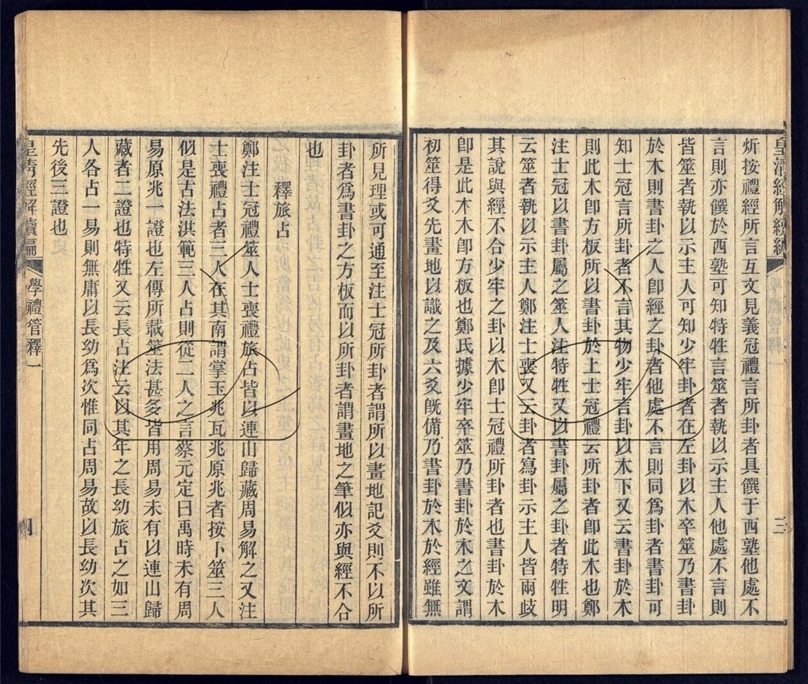 皇清經解續編
炘按禮經所言互文見義冠禮言所卦者具饌于西塾他處不
言則亦饌於西塾可知特牲言筮者執以示主人他處不言則
皆筮者執以示主人可知少牢卦者在左卦以木卒筮乃書卦
於木則書卦之人卽經之卦者他處不言則同爲卦者書卦可
知士冠言所卦者不言其物少牢言卦以木下又云書卦於木
則此木卽方板所以書卦於上士冠禮云所卦者卽此木也鄭
注士冠以書卦屬之筮人注特牲又以書卦屬之卦者特牲明
云筮者執以示主人鄭注士喪又云卦者寫卦示主人皆兩歧
其說與經不合少牢之卦以木卽士冠禮所卦者也書卦於木
卽是此木木卽方板也鄭氏據少牢卒筮乃書卦於木之文謂
初筮得爻先畫地以識之及六爻旣備乃書卦於木於經雖無
三
所見理或可通至注士冠所卦者謂所以畫地記爻則不以所
卦者爲書卦之方板而以所卦者謂畫地之筆似亦與經不合
也
釋旅占
鄭注士冠禮筮人士喪禮旅占皆以連山歸藏周易解之又注
士喪禮占者三人在其南謂掌玉兆瓦兆原兆者按卜筮三人
似是古法洪範三人占則從二人之言蔡元定曰禹時未有周
易原兆一證也左傳所載筮法甚多皆用周易未有以連山歸
藏者二證也特牲又云長占注云以其年之長幼旅占之如三
人各占一易則無庸以長幼爲次惟同占周易故以長幼次其
先後三證也
皇清經解續編
學禮管釋一
四